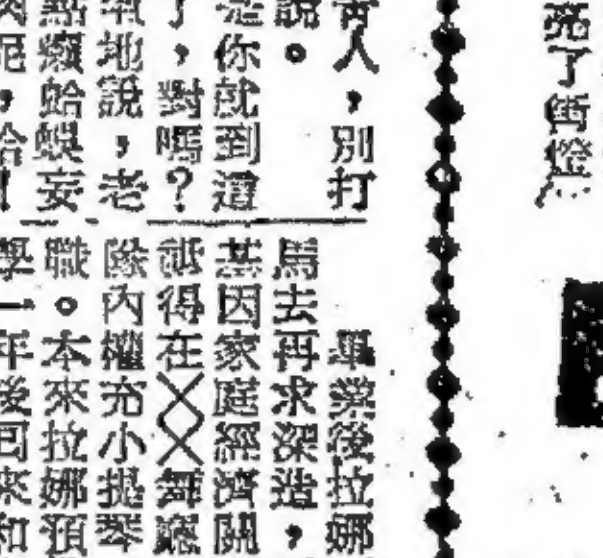 亮了街燈…
人，別打
說。
是你就到這
了，對嗎？
氣地說，老
點癩蛤蟆妄
呢，哈！
畢業後拉娜
馬去再求深造，
基因家庭經濟關
祇得在××舞廳
隊內權充小提琴
職。本來拉娜預
學一年後回來和